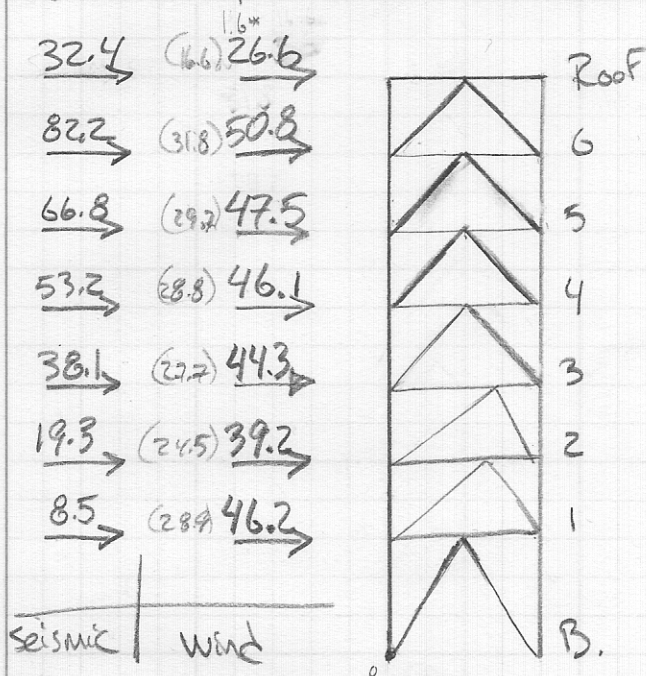 1.6*
32.4 (16.6) 26.6 Roof
82.2 (31.8) 50.8 6
66.8 (29.7) 47.5 5
53.2 (28.8) 46.1 4
38.1 (27.7) 44.3 3
19.3 (24.5) 39.2 2
8.5 (28.9) 46.2 1
seismic wind B.